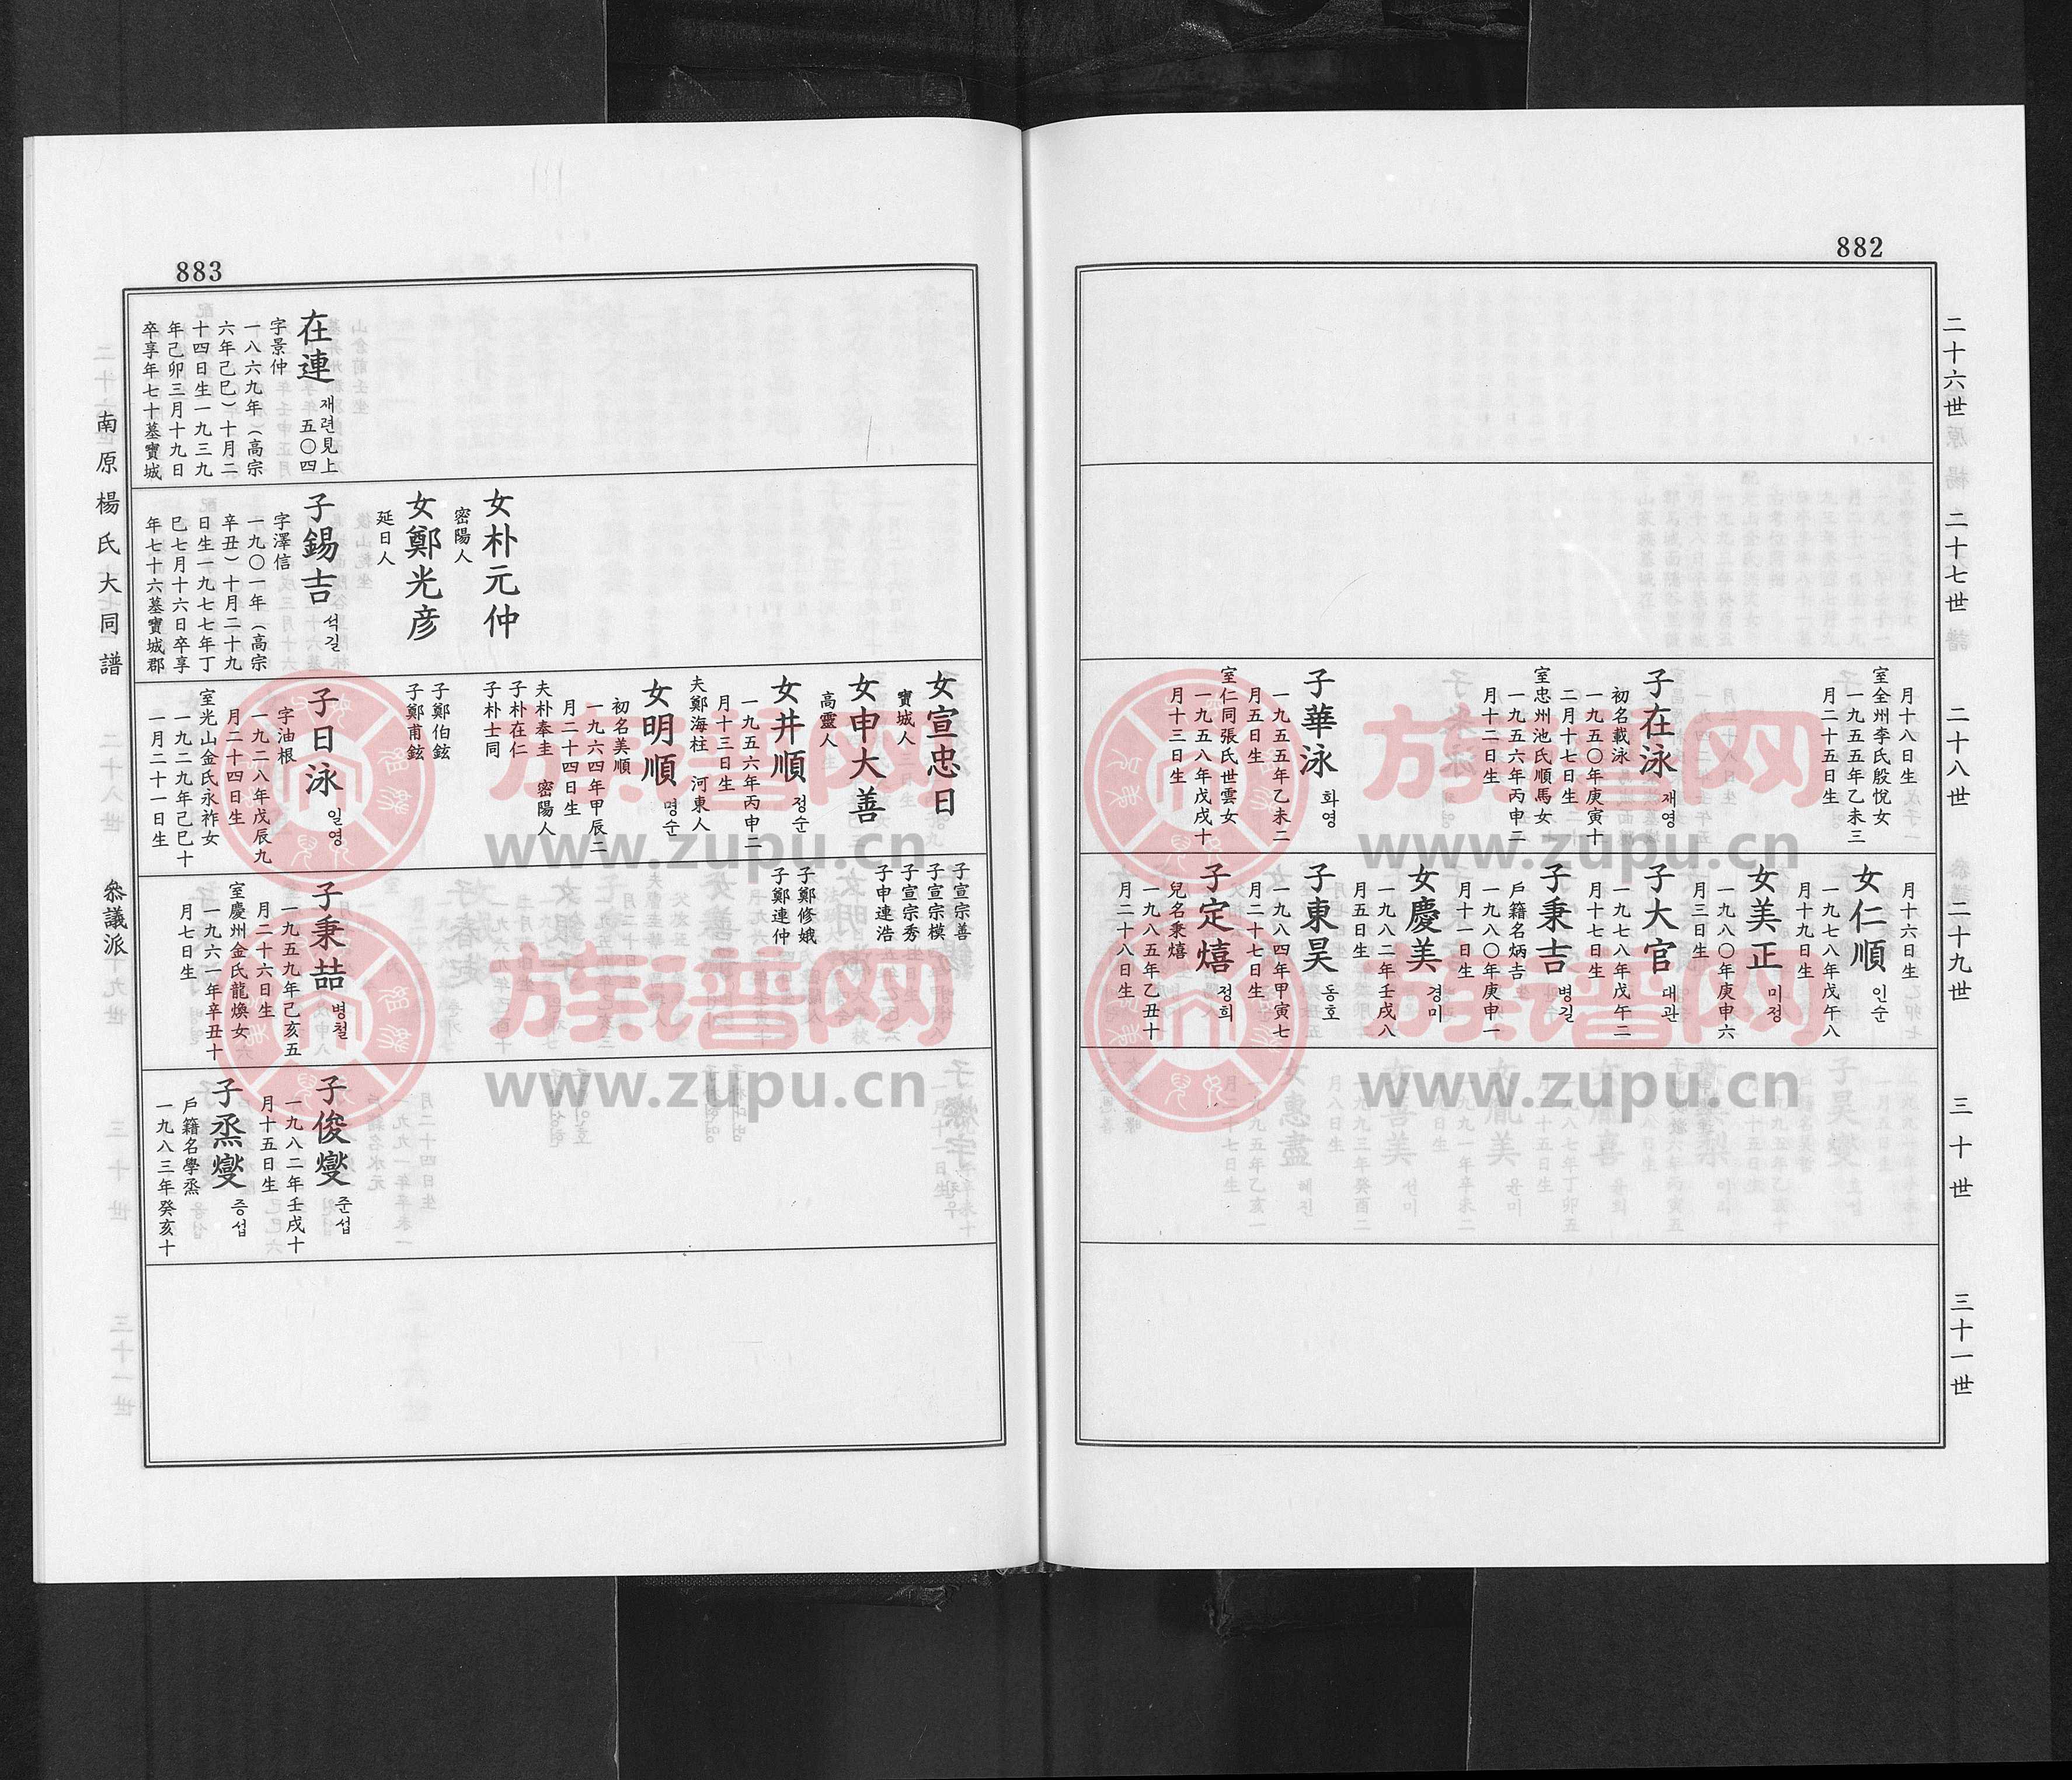 882
二十六世
二十七世
二十八世
二十九世
三十世
三十一世
月十八日生
室全州李氏殷悅女
一九五五年乙未三
月二十五日生
子在泳 재영
初名載泳
一九五〇年庚寅十
二月十七日生
室忠州池氏順馬女
一九五六年丙申二
月十二日生
子華泳 화영
一九五五年乙未二
月五日生
室仁同張氏世雲女
一九五八年戊戌十
月十三日生
月十六日生
女仁順 인순
一九七八年戊午八
月十九日生
女美正 미정
一九八〇年庚申六
月三日生
子大官 대관
一九七八年戊午二
月十七日生
子秉吉 병길
戶籍名炳吉
一九八〇年庚申一
月十一日生
女慶美 경미
一九八二年壬戌八
月五日生
子東昊 동호
一九八四年甲寅七
月二十七日生
子定熺 정희
兒名秉熺
一九八五年乙丑十
月二十八日生
883
南原楊氏大同譜
叅議派
在連 재련 見上五〇四
字景仲
一八六九年(高宗
六年己巳)十月二
十四日生一九三九
年己卯三月十九日
卒享年七十墓寶城
女朴元仲
密陽人
女鄭光彦
延日人
子錫吉 석길
字澤信
一九〇一年(高宗
辛丑)十月二十九
日生一九七七年丁
巳七月十六日卒享
年七十六墓寶城郡
女宣忠日
寶城人
女申大善
高靈人
女井順 정순
一九五六年丙申二
月十三日生
夫鄭海柱 河東人
女明順 명순
初名美順
一九六四年甲辰二
月二十四日生
夫朴奉圭 密陽人
子朴在仁
子朴士同
子鄭伯鉉
子鄭甫鉉
子日泳 일영
字油根
一九二八年戊辰九
月二十四日生
室光山金氏永祚女
一九二九年己巳十
一月二十一日生
子宣宗善
子宣宗模
子宣宗秀
子申連浩
子鄭修娥
子鄭連仲
子秉喆 병철
一九五九年己亥五
月二十六日生
室慶州金氏龍煥女
一九六一年辛丑十
月七日生
子俊燮 준섭
一九八二年壬戌十
月十五日生
子烝燮 증섭
戶籍名學烝
一九八三年癸亥十
族谱网
www.zupu.cn
族谱网
www.zupu.cn
族谱网
www.zupu.cn
族谱网
www.zupu.cn